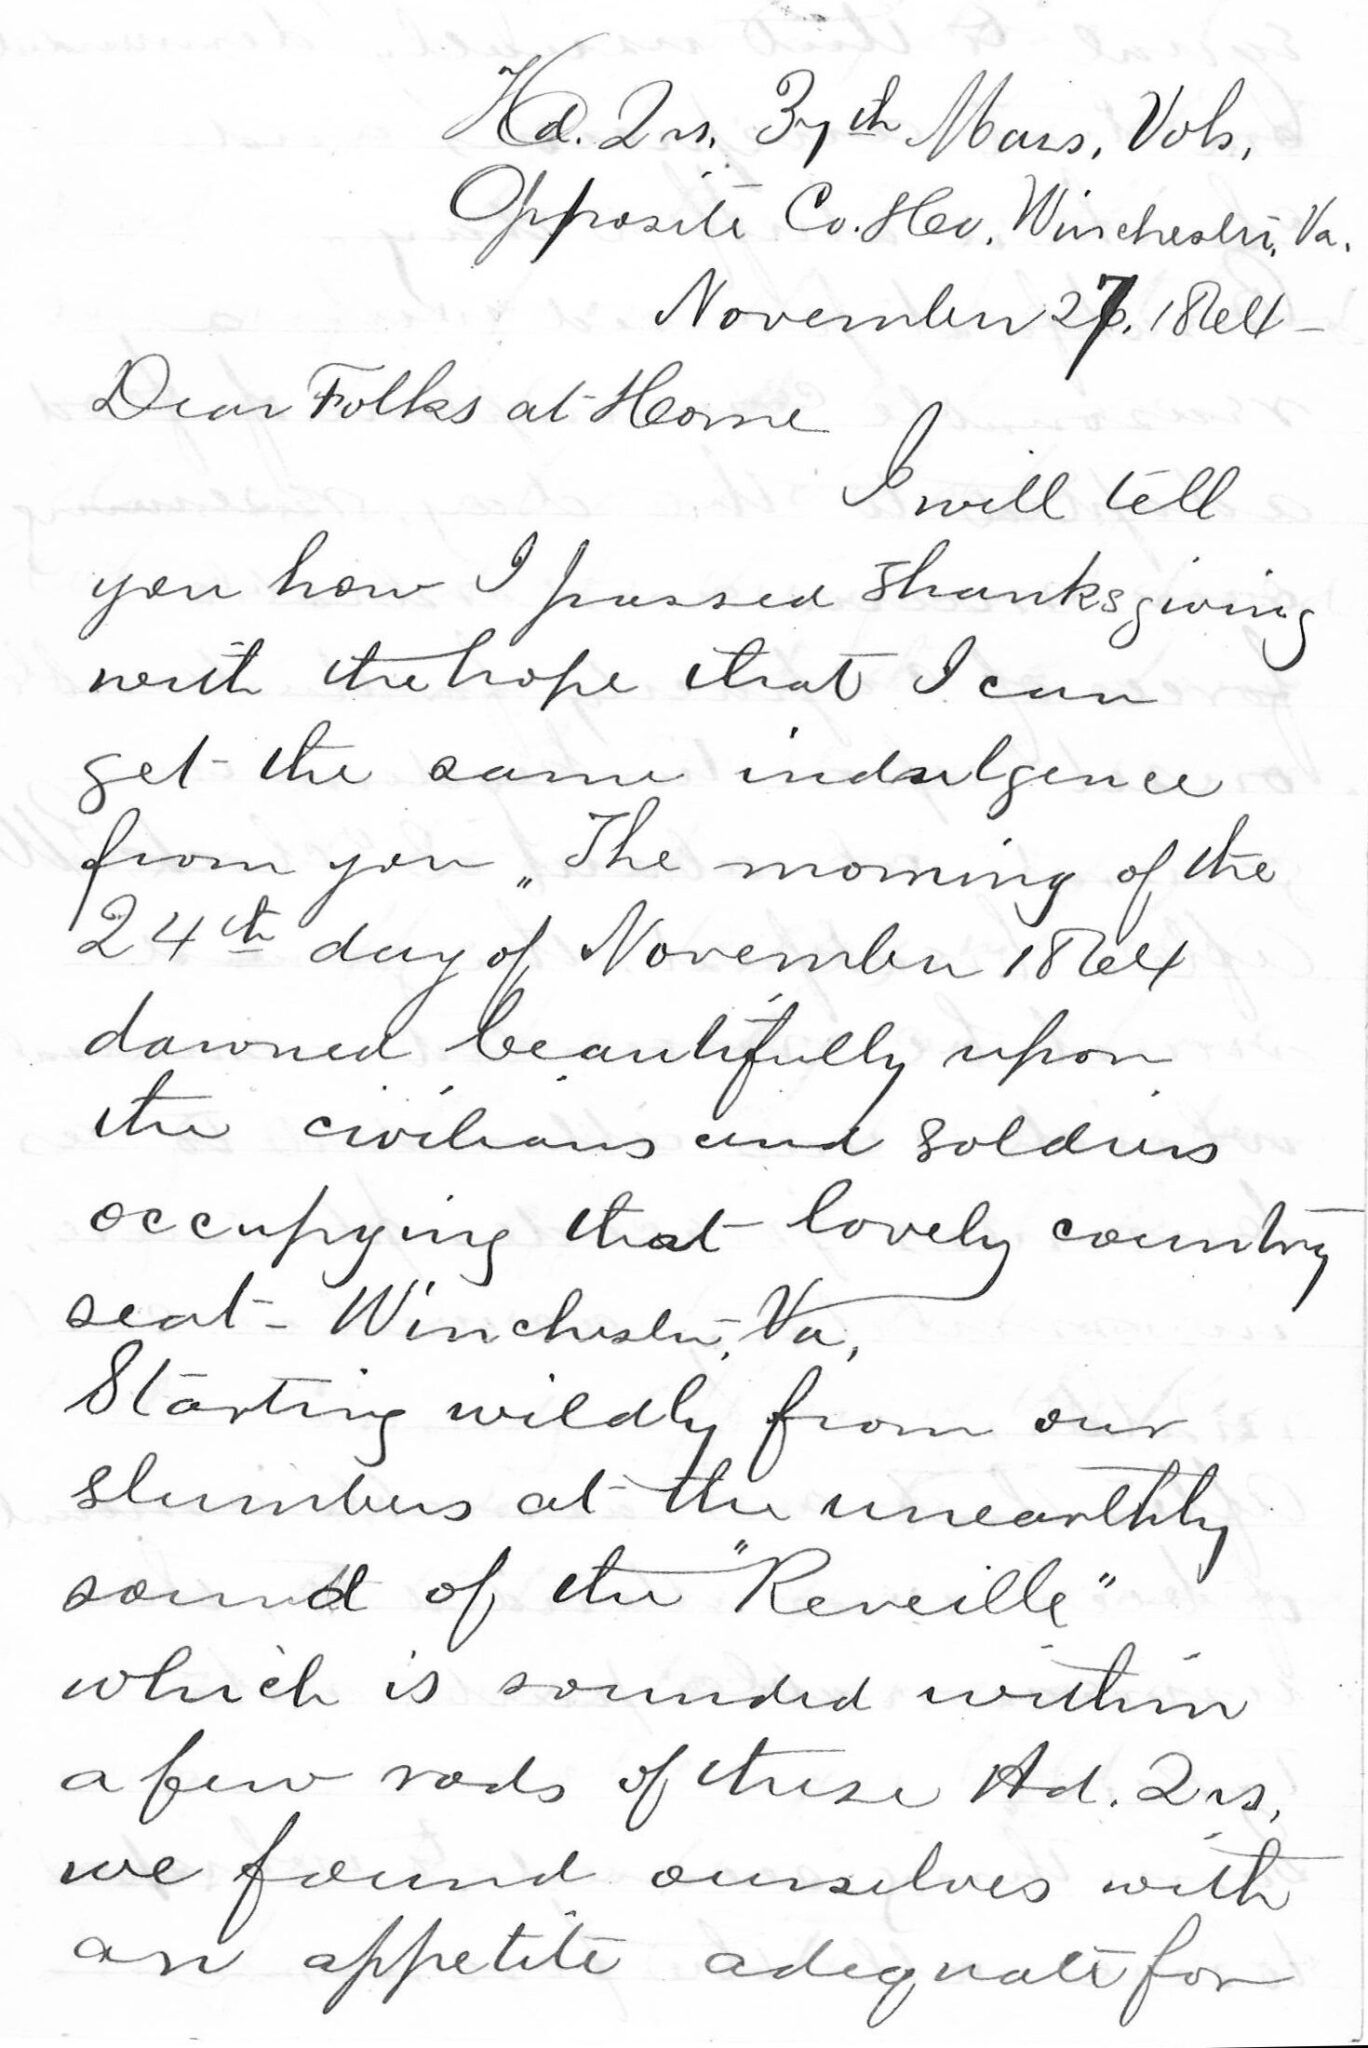 Hd. Qrs. 37th Mass. Vols.
Opposite Co. Ho. Winchester, Va.
November 27. 1864 -
Dear Folks at Home
I will tell
you how I passed Thanksgiving
with the hope that I can
get the same indulgence
from you „ The morning of the
24th day of November 1864
dawned beautifully upon
the civilians and soldiers
occupying that lovely country
seat - Winchester, Va,
Starting wildly from our
slumbers at the unearthly
sound of the "Reveille"
which is sounded within
a few rods of these Hd. Qrs,
we found ourselves with
an appetite adequate for